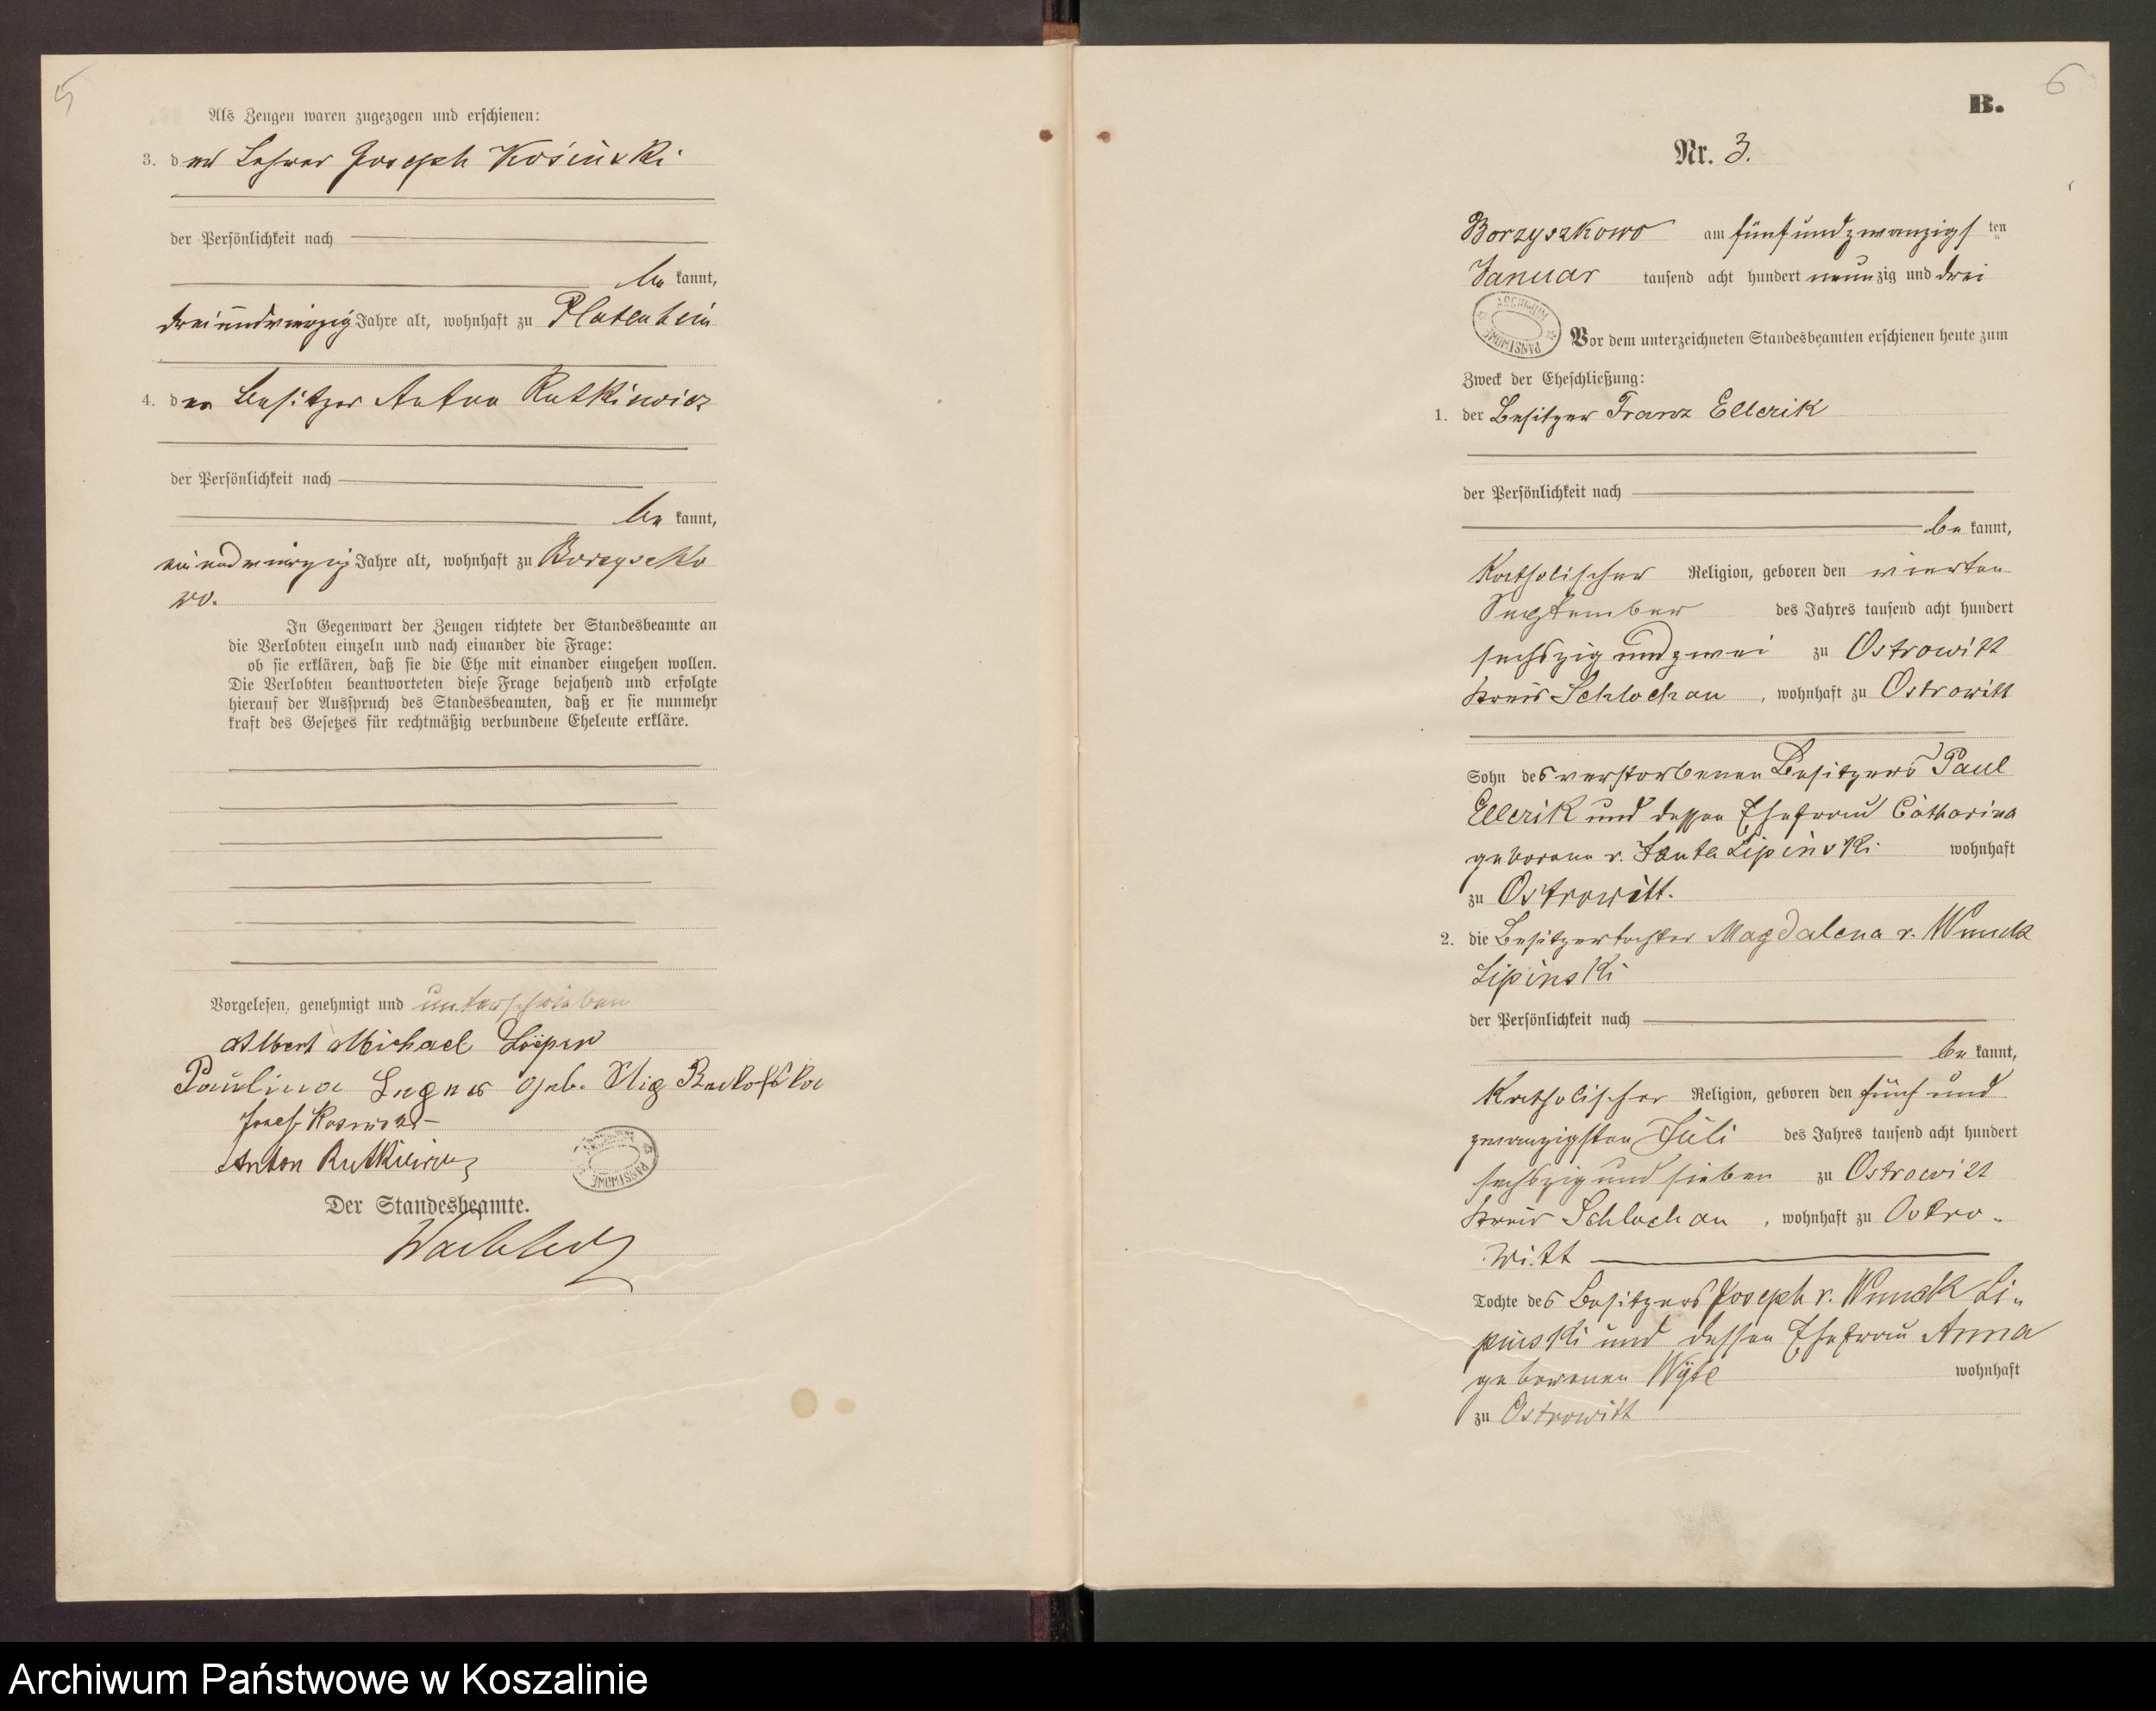 5
Als Zeugen waren zugezogen und erschienen:
3. der Lehrer Joseph Kośinski
der Persönlichkeit nach
be kannt,
dreiundvierzig Jahre alt, wohnhaft zu Platenheim
4. der Besitzer Anton Rutkiewicz
der Persönlichkeit nach
be kannt,
einundvierzig Jahre alt, wohnhaft zu Borzyszko
wo.
In Gegenwart der Zeugen richtete der Standesbeamte an
die Verlobten einzeln und nach einander die Frage:
ob sie erklären, daß sie die Ehe mit einander eingehen wollen.
Die Verlobten beantworteten diese Frage bejahend und erfolgte
hierauf der Ausspruch des Standesbeamten, daß er sie nunmehr
kraft des Gesetzes für rechtmäßig verbundene Eheleute erkläre.
Vorgelesen, genehmigt und unterschrieben
Albert Michael
Paulina geb.
Josef
Anton Rutkiewicz
ARCHIWUM PAŃSTWOWE
Der Standesbeamte.
6
B.
Nr. 3.
Borzyszkowo am fünfundzwanzigs ten
Januar tausend acht hundert neunzig und drei
ARCHIWUM PAŃSTWOWE
Vor dem unterzeichneten Standesbeamten erschienen heute zum
Zweck der Eheschließung:
1. der Besitzer Franz Ellerik
der Persönlichkeit nach
be kannt,
Katholischer Religion, geboren den vierten
September des Jahres tausend acht hundert
sechszig und zwei zu Ostrowitt
Kreis Schlochau, wohnhaft zu Ostrowitt
Sohn des verstorbenen Besitzers Paul
Ellerik und dessen Ehefrau Catharina
geborene v. Janta Lipinski wohnhaft
zu Ostrowitt.
2. die Besitzertochter Magdalena v. Wnuck
Lipinski
der Persönlichkeit nach
be kannt,
Katholischer Religion, geboren den fünf und
zwanzigsten Juli des Jahres tausend acht hundert
sechszig und sieben zu Ostrowitt
Kreis Schlochau, wohnhaft zu Ostro-
witt
Tochte des Besitzers Joseph v. Wnuck Li-
pinski und dessen Ehefrau Anna
geborenen wohnhaft
zu Ostrowitt
Archiwum Państwowe w Koszalinie